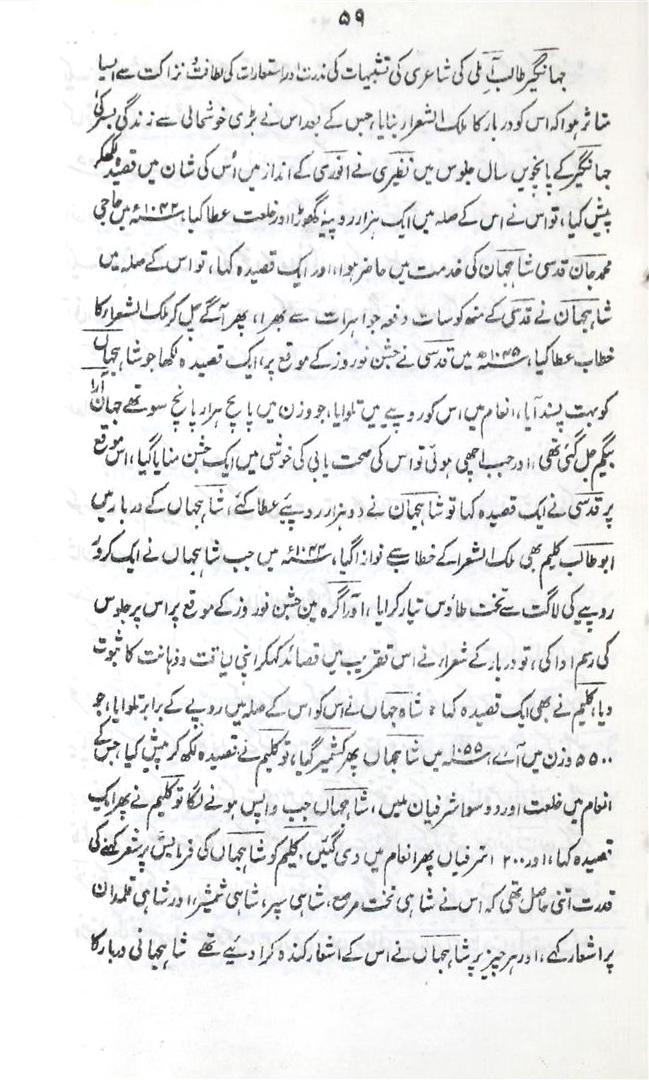 ۵۹
جہانگیر طالب آملی کی شاعری کی تشبیہات کی ندرت اور استعارات کی لطافت و نزاکت سے ایسا
متاثر ہوا کہ اس کو دربار کا ملک الشعراء بنایا، جس کے بعد اس نے بڑی خوشحالی سے زندگی بسر کی
جہانگیر کے پانچویں سال جلوس میں نظیری نے انوری کے انداز میں اُس کی شان میں قصیدہ لکھکر
پیش کیا، تو اس نے اس کے صلہ میں ایک ہزار روپیہ گھوڑا اور خلعت عطا کیا، ۱۰۴۲ھ میں حاجی
محمد جان قدسی شاہجہان کی خدمت میں حاضر ہوا، اور ایک قصیدہ کہا، تو اس کے صلہ میں
شاہجہان نے قدسی کے منھ کو سات دفعہ جواہرات سے بھرا، پھر آگے چل کر ملک الشعراء کا
خطاب عطا کیا، ۱۰۴۵ھ میں قدسی نے جشن نوروز کے موقع پر ایک قصیدہ لکھا جو شاہجہاں
کو بہت پسند آیا، انعام میں اس کو روپیے میں تلوایا، جو وزن میں پانچ ہزار پانچ سو تھے جہان آرا
بیگم جل گئی تھی، اور جب اچھی ہوئی تو اس کی صحت یابی کی خوشی میں ایک جشن منایا گیا، اس موقع
پر قدسی نے ایک قصیدہ کہا تو شاہجہان نے دو ہزار روپیئے عطا کئے، شاہجہاں کے دربار میں
ابو طالب کلیم بھی ملک الشعراء کے خطاب سے نوازا گیا، ۱۰۴۴ھ میں جب شاہجہاں نے ایک کروڑ
روپیے کی لاگت سے تخت طاؤس تیار کرایا، اور آگرہ مین جشن نوروز کے موقع پر اس پر جلوس
کی رسم ادا کی، تو دربار کے شعراء نے اس تقریب میں قصائد کہکر اپنی لیاقت و ذہانت کا ثبوت
دیا، کلیم نے بھی ایک قصیدہ کہا، شاہ جہاں نے اس کو اس کے صلہ میں روپے کے برابر تلوایا، جو
۵۵۰۰ وزن میں آے، ۱۰۵۵ھ میں شاہجہاں پھر کشمیر گیا، تو کلیم نے قصیدہ لکھ کر پیش کیا جس کے
انعام میں خلعت اور دو سو اشرفیان ملیں، شاہجہاں جب واپس ہونے لگا تو کلیم نے پھر ایک
قصیدہ کہا، اور ۲۰۰ اشرفیاں پھر انعام میں دی گئیں، کلیم کو شاہجہاں کی فرمایش پر شعر کہنے کی
قدرت اتنی حاصل تھی کہ اس نے شاہی تخت مرصع، شاہی سپر، شاہی شمشیر، اور شاہی قلمدان
پر اشعار کہے، اور ہر چیز پر شاہجہاں نے اس کے اشعار کندہ کرا دیئے تھے شاہجہانی دربار کا